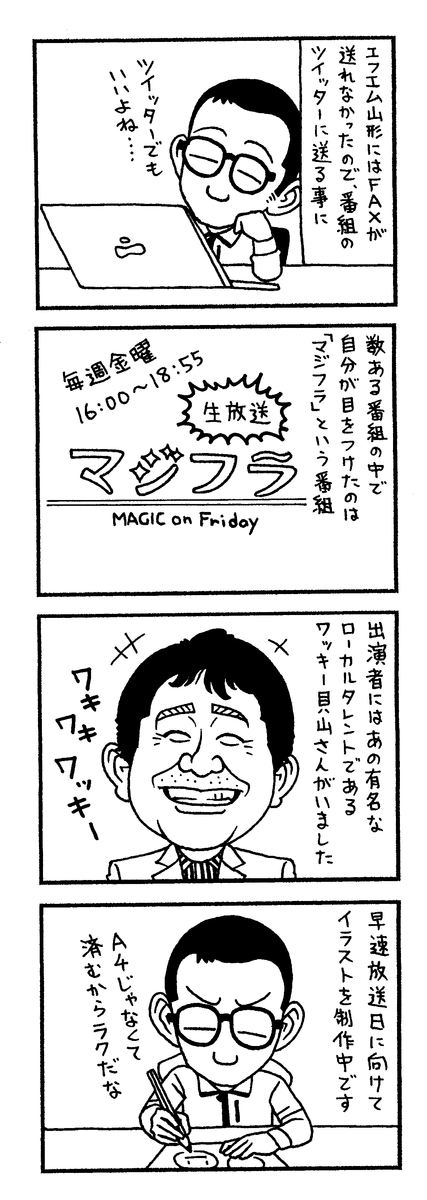 エフエム山形にはFAXが
送れなかったので、番組の
ツイッターに送る事に
ツイッターでも
いいよね…
数ある番組の中で
自分が目をつけたのは
「マジフラ」という番組
毎週金曜
16:00〜18:55
生放送
マジフラ
MAGIC on Friday
出演者にはあの有名な
ローカルタレントである
ワッキー貝山さんがいました
ワキ
ワキ
ワッキー
早速放送日に向けて
イラストを制作中です
A4じゃなくて
済むからラクだな